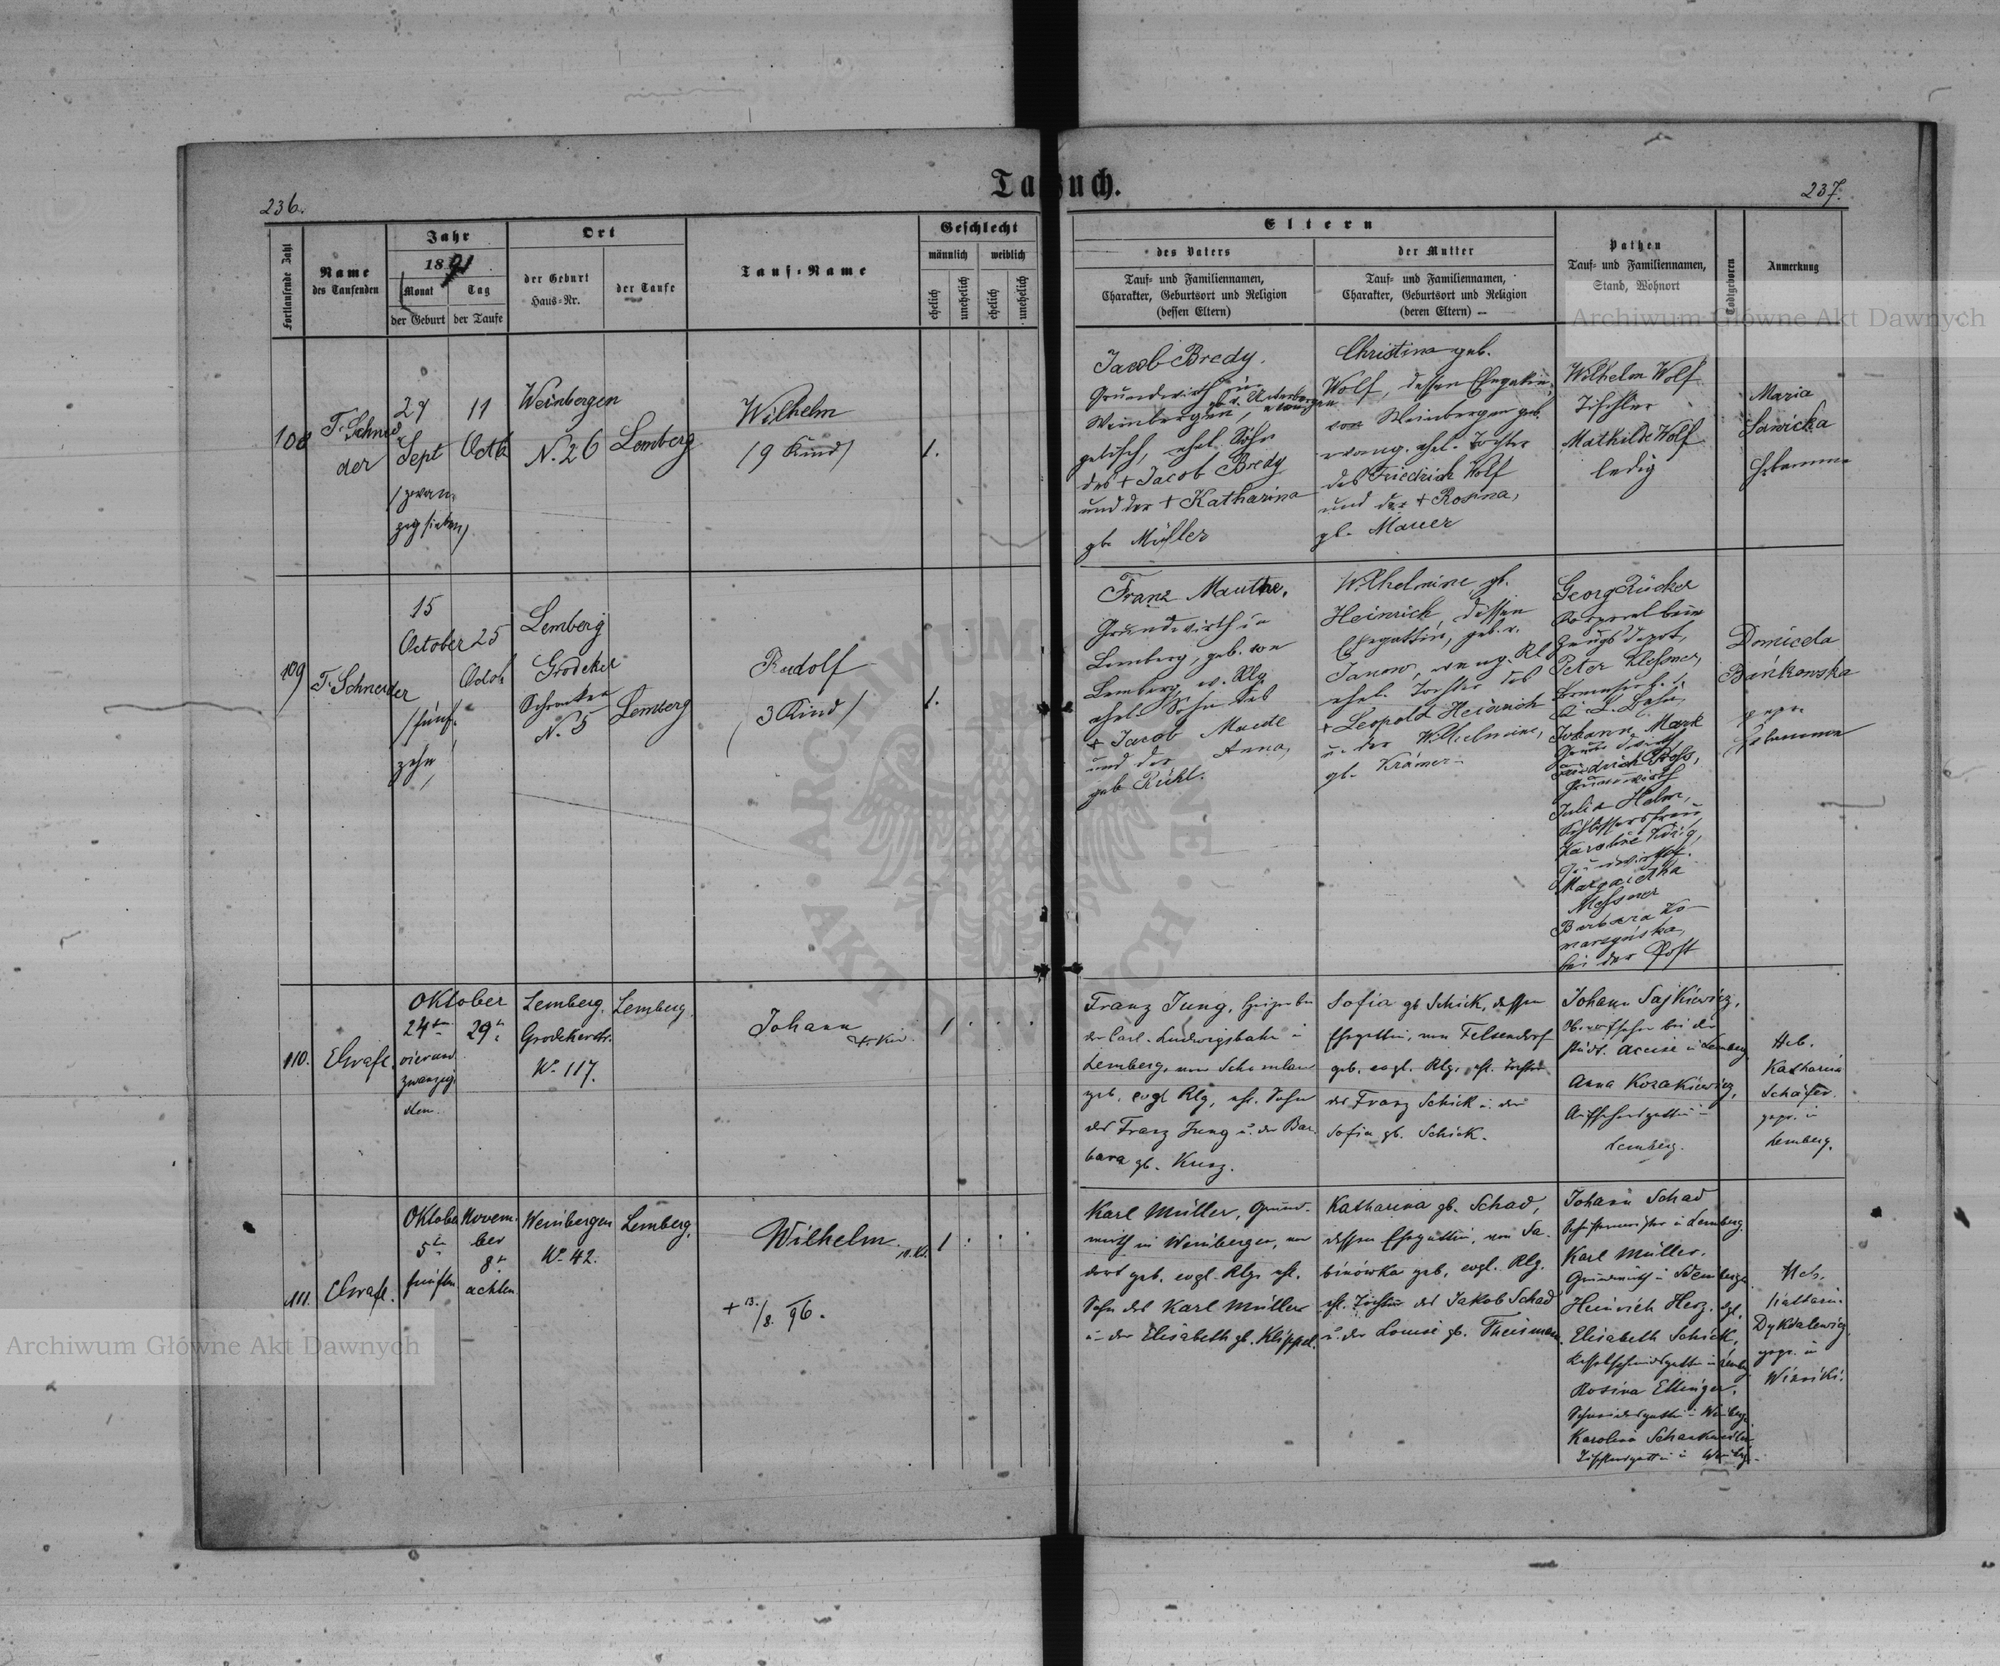 236.
Taufbuch.
237.
Fortlaufende Zahl
Name
des Taufenden
Jahr
1891
Monat
der Geburt
Tag
der Taufe
Ort
der Geburt
Haus-Nr.
der Taufe
Tauf-Name
Geschlecht
männlich
weiblich
ehelich
unehelich
ehelich
unehelich
Eltern
des Vaters
Tauf- und Familiennamen,
Charakter, Geburtsort und Religion
(dessen Eltern)
der Mutter
Tauf- und Familiennamen,
Charakter, Geburtsort und Religion
(deren Eltern)
Pathen
Tauf- und Familiennamen,
Stand, Wohnort
Todtgeboren
Anmerkung
108
F. Schnei
der
27
Sept
(zwan
zig sieben)
11
Octb
Weinbergen
N. 26
Lemberg
Wilhelm
(9 Kind)
1.
Jacob Bredy,
Grundwirth in
Weinbergen,
gelisch, ehel. Sohn
des + Jacob Bredy
und der + Katharina
gb. Müller
Christina geb.
Wolf, dessen Ehegattin,
von Weinbergen geb.
evang. ehel. Tochter
des Friedrich Wolf
und der + Rosina,
gb. Mauer
Wilhelm Wolf
Tischler
Mathilde Wolf
ledig
Maria
Sawicka
Hebamme
109
F. Schneider
15
October
(fünf-
zehn)
25
Octob
Lemberg
Grodeker
Schranken
N. 5
Lemberg
Rudolf
(3 Kind)
1.
Franz Mauthe,
Grundwirth in
Lemberg, geb. von
Lemberg ev. Rlg
ehel. Sohn des
+ Jacob
und der Anna,
geb Rückl.
Wilhelmine gb.
Heinrich dessen
Ehegattin, geb. v.
Janow, evang. Rl
ehel. Tochter des
+ Leopold Heinrich
u. der Wilhelmine,
gb. Krämer
Georg Rücker
Corporal beim
Zeugs Depot,
Peter Klessner,
Johann Mark
Friedrich
Grundwirth
Julia Halm,
Schlossersfrau
Karoline König,
Margaretha
Messner
Barbara Ko-
marzynska,
bei der Post
Domicela
Bańkowska
gepr.
Hebamme
110.
Grafl.
Oktober
24te
vierund
zwanzig
sten.
29te
Lemberg,
Grodekerstr.
No 117.
Lemberg
Johann
1
Franz Jung, Heizer bei
der Carl-Ludwigsbahn in
Lemberg, von Schomlau
geb, evgl Rlg, ehl. Sohn
des Franz Jung u. der Bar-
bara gb. Kurz.
Sofia gb Schick, dessen
Ehegattin, von Felsendorf
geb. evgl. Rlg, ehl. Tochter
des Franz Schick u. der
Sofia gb. Schick.
Johann Sajkiewicz,
Oberaufseher bei der
städt. Accise in Lemberg
Anna Kozakiewicz,
Aufsehersgattin in
Lemberg.
Heb.
Katharina
Schäfer.
gepr. in
Lemberg.
111.
Grafl.
Oktober
5te
fünften
Novem-
ber
8te
achten
Weinbergen
No 42.
Lemberg,
Wilhelm
+ 13./8. 96.
1
Karl Müller, Grund-
wirth in Weinbergen, von
dort geb. evgl. Rlg. ehl.
Sohn des Karl Müller
u. der Elisabeth gb. Klippel.
Katharina gb. Schad,
dessen Ehegattin, von Sa-
binówka geb, evgl. Rlg.
ehl. Tochter des Jakob Schad
u. der Louise gb. Theismann
Johann Schad
Schustermeister in Lemberg.
Karl Müller,
Grundwirth in Weinbergen
Heinrich Herz. dgl.
Elisabeth Schick,
Kesselschmidsgattin in Lemberg
Rosina Ettinger,
Schneidersgattin in Weinberg.
Karolina
Tischlersgattin in Weinbg.
Heb.
Katharina
Dykdalewicz,
gepr. in
Winniki.
Archiwum Główne Akt Dawnych
Archiwum Główne Akt Dawnych